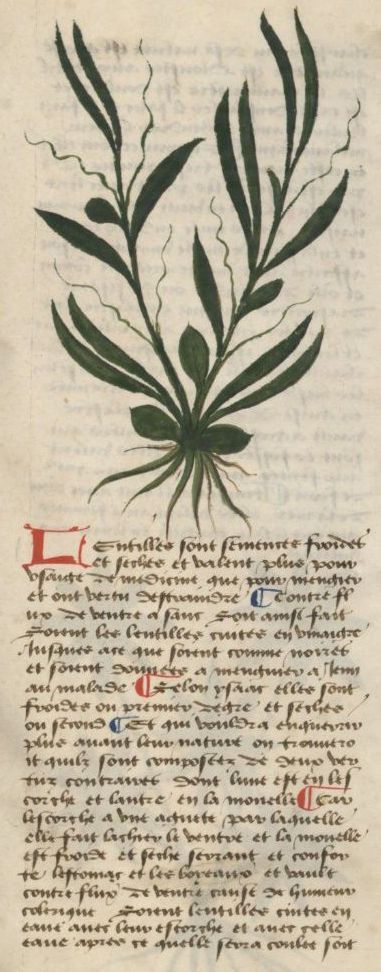 Lentilles sont semences froides
et seches et valent plus pour
vsaige de medicine que pour mengier
et ont vertu destraindre ¶ Contre fl
ux de ventre a sanc Soit ainsi fait
Soient les lentilles cuites en vinaigre
Jusques ace que soient comme noires
et soient donnees a menguier a Jeun
au malade ¶ Selon ysaac elles sont
froides ou premier degre et seches
ou second ¶ Et qui vouldra enquerir
plus auant leur nature on trouuero
it quilz sont composees de deux ver
tuz contraires dont lune est en les
corche et lautre en la mouelle ¶ Car
lescorche a vne aguete par laquelle
elle fait lachier le ventre et la mouelle
est froide et seche serrant et confor
te lestomac et les boyeaux et vault
contre flux de ventre cause de humeur
colerique Soient lentilles cuites en
eaue auec leur escorche et auec celle
eaue apres ce quelle sera coulee soit